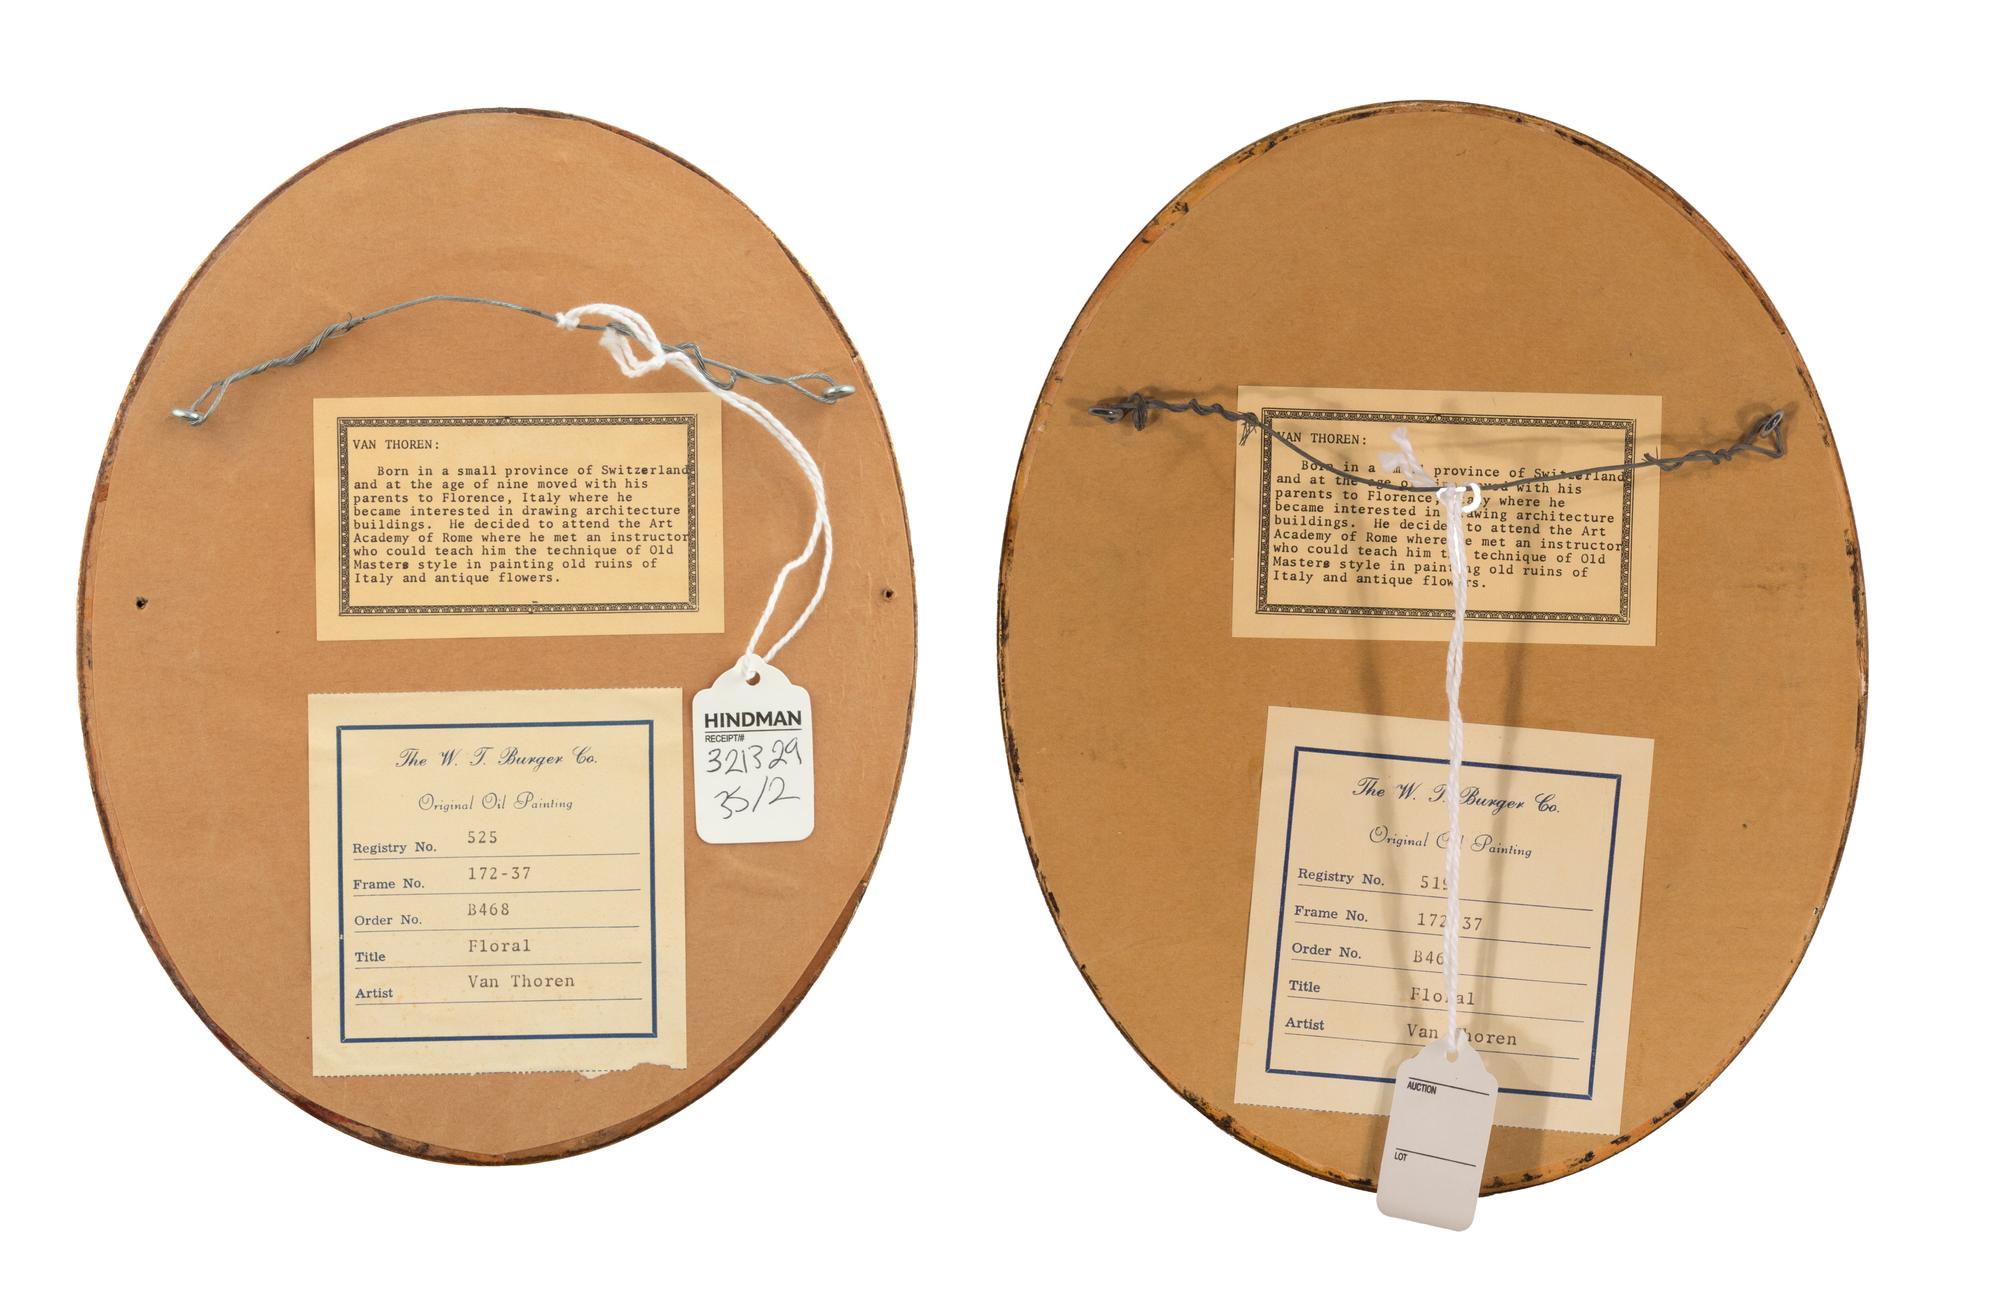 VAN THOREN:
Born in a small province of Switzerland
and at the age of nine moved with his
parents to Florence, Italy where he
became interested in drawing architecture
buildings. He decided to attend the Art
Academy of Rome where he met an instructor
who could teach him the technique of Old
Masters style in painting old ruins of
Italy and antique flowers.
The W. T. Burger Co.
Original Oil Painting
Registry No. 525
Frame No. 172-37
Order No. B468
Title Floral
Artist Van Thoren
HINDMAN
RECEIPT/#
321329
35/2
VAN THOREN:
Born in a small province of Switzerland
and at the age of nine moved with his
parents to Florence, Italy where he
became interested in drawing architecture
buildings. He decided to attend the Art
Academy of Rome where he met an instructor
who could teach him the technique of Old
Masters style in painting old ruins of
Italy and antique flowers.
The W. T. Burger Co.
Original Oil Painting
Registry No. 519
Frame No. 172-37
Order No. B46
Title Floral
Artist Van Thoren
AUCTION
LOT